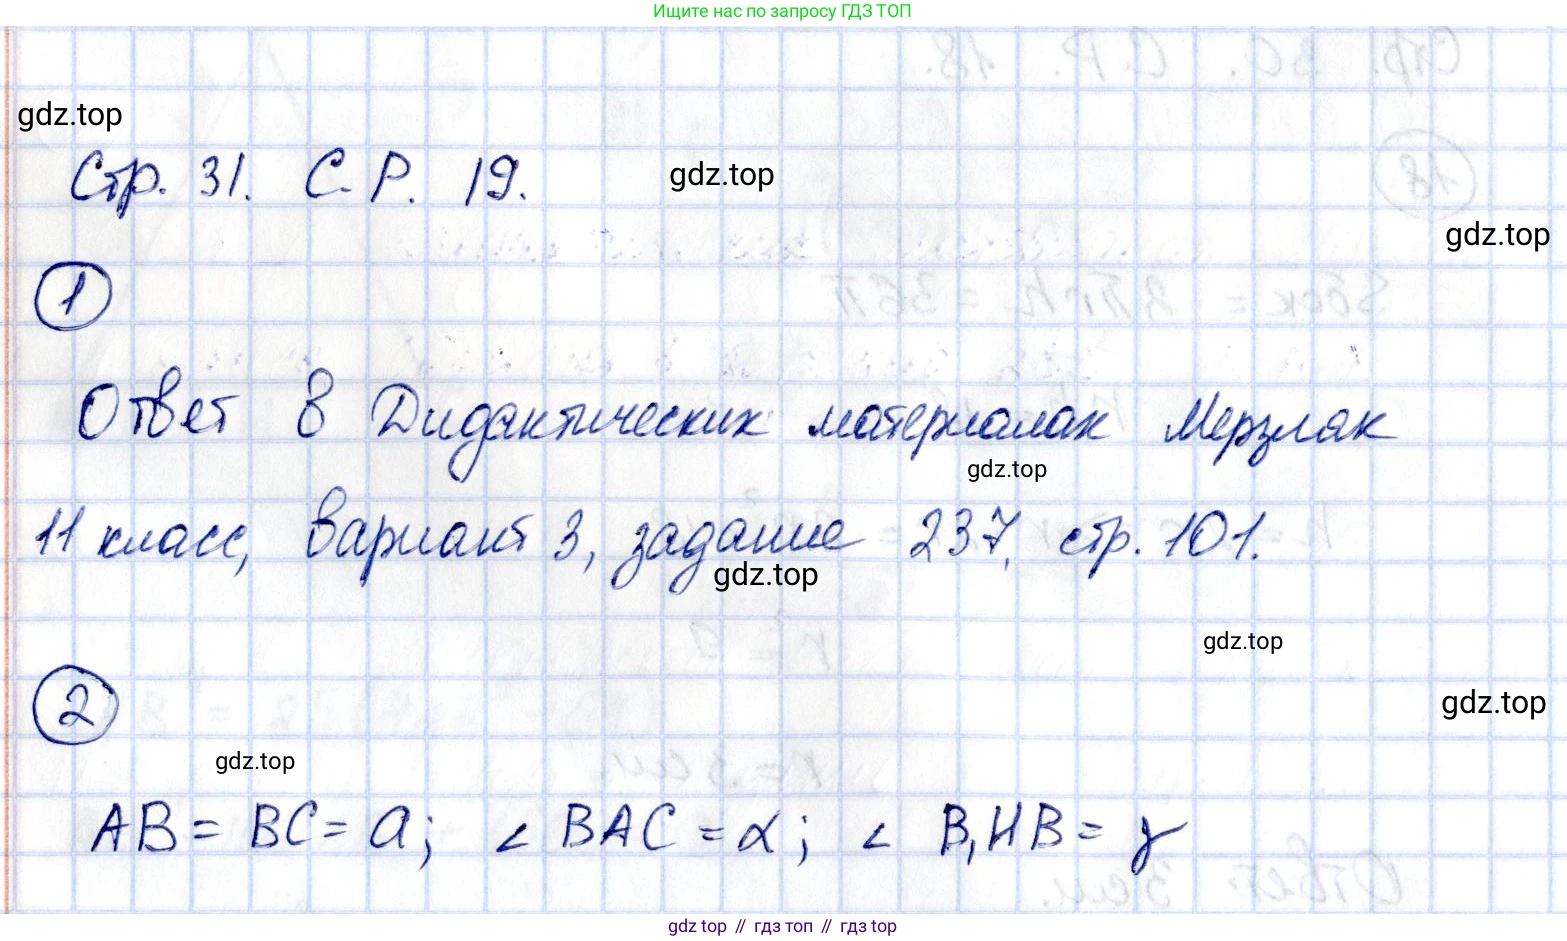 Ищите нас по запросу ГДЗ ТОП
gdz.top
Стр. 31. С.Р. 19.
gdz.top
gdz.top
1
Ответ в Дидактических материалах Мерзляк
gdz.top
11 класс, вариант 3, задание 237, стр. 101.
gdz.top
gdz.top
2
gdz.top
gdz.top
AB = BC = a; ∠ BAC = α; ∠ B₁HB = γ
gdz top // гдз топ // гдз top